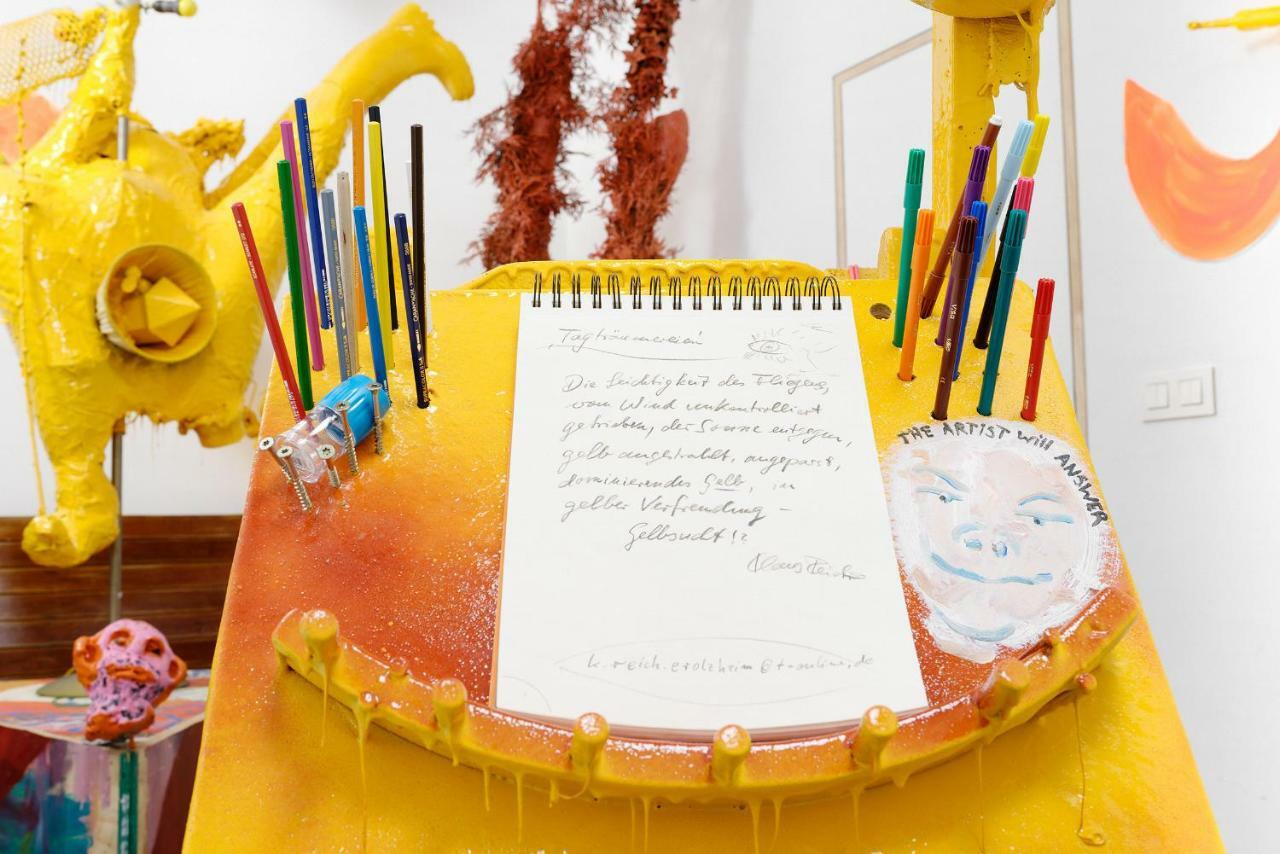 Tagträumereien
Die Leichtigkeit des Fliegens,
vom Wind unkontrolliert
getrieben, der Sonne entgegen,
gelb angestrahlt, angepasst,
dominierendes Gelb, in
gelber Verfremdung –
Gelbsucht!?
Klaus Reich
k.reich.erolzheim@t-online.de
THE ARTIST will ANSWER